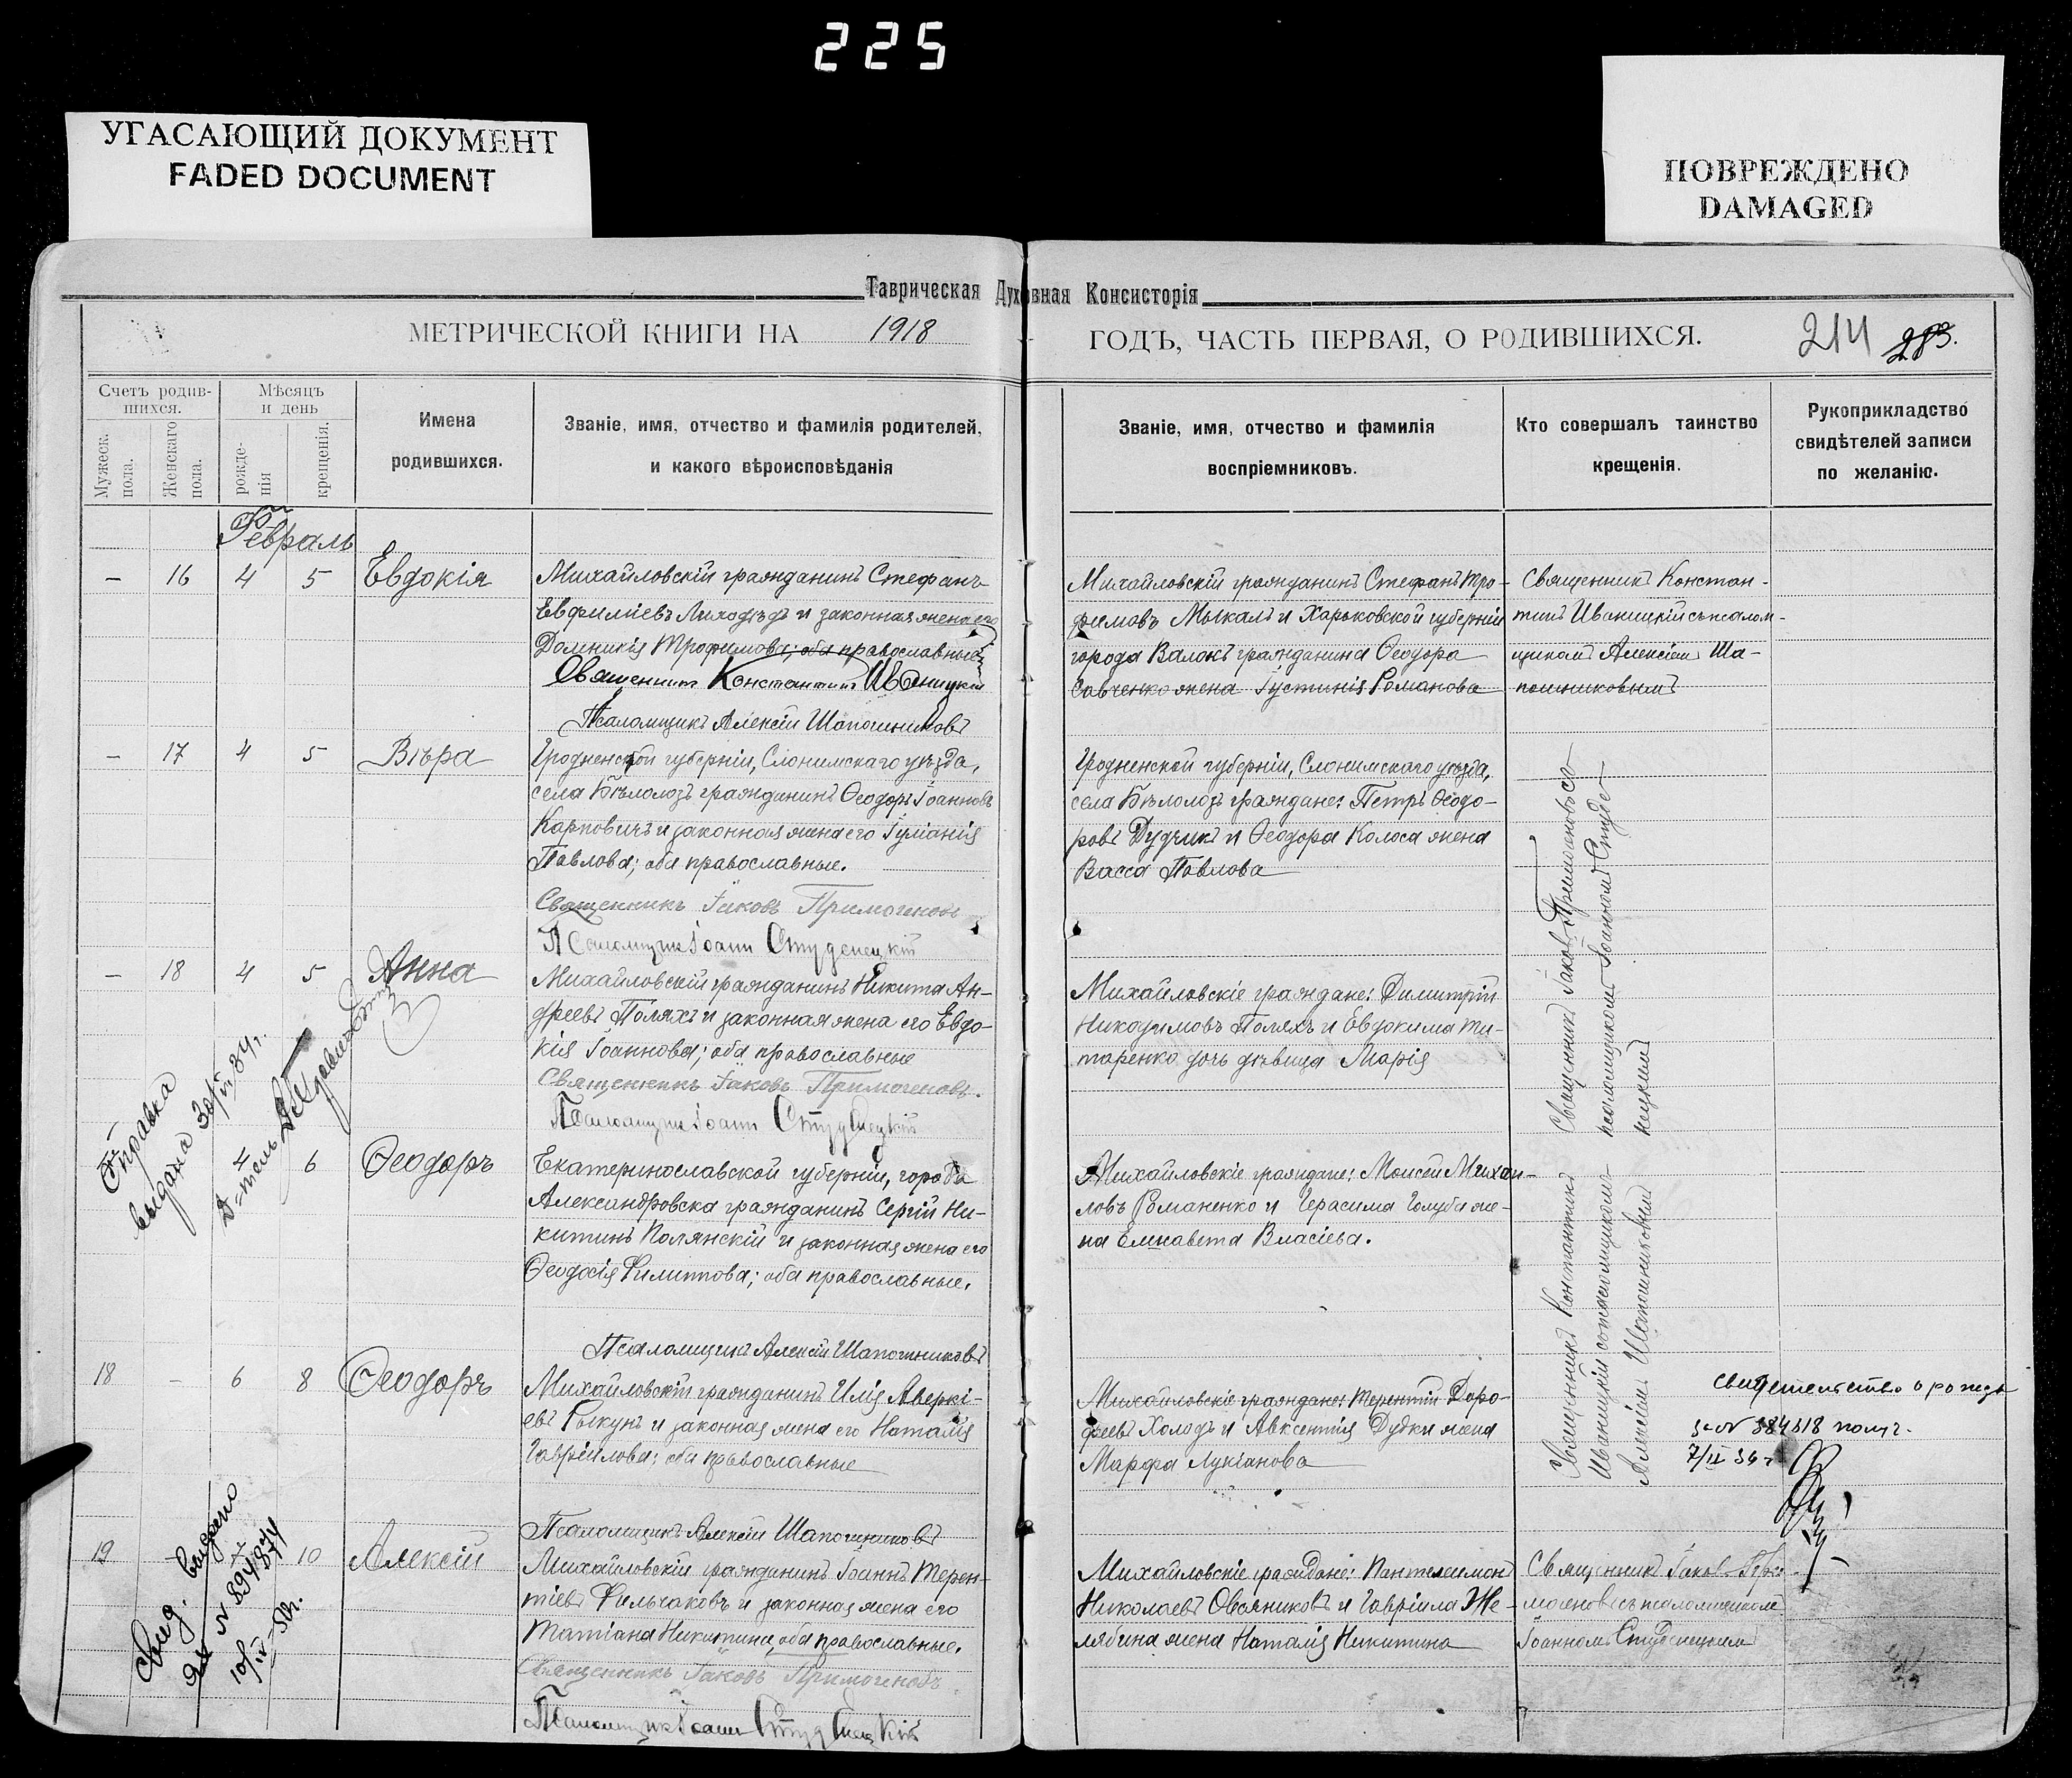 225
УГАСАЮЩИЙ ДОКУМЕНТ
FADED DOCUMENT
ПОВРЕЖДЕНО
DAMAGED
Таврическая Духовная Консисторія
МЕТРИЧЕСКОЙ КНИГИ НА 1918
ГОДЪ, ЧАСТЬ ПЕРВАЯ, О РОДИВШИХСЯ.
214 283.
Счетъ родив-
шихся.
Мѣсяцъ
и день
Мужеск.
пола.
Женскаго
пола.
рожде-
нія
крещенія.
Имена
родившихся.
Званіе, имя, отчество и фамилія родителей,
и какого вѣроисповѣданія
Званіе, имя, отчество и фамилія
воспріемниковъ.
Кто совершалъ таинство
крещенія.
Рукоприкладство
свидѣтелей записи
по желанію.
Февраль
– 16 4 5 Евдокія
Михайловскій гражданинъ Стефанъ
Евфиміевъ Лиходѣдъ и законная жена его
Домникія Трофимова; оба православные
Священникъ Константинъ Иваницкій
Псаломщикъ Алексій Шапошниковъ
Михайловскій гражданинъ Стефанъ Тро-
фимовъ Мыкалъ и Харьковской губерніи
города Валокъ гражданина Ѳеодора
Савченко жена Іустинія Романова
Священникъ Констан-
тинъ Иваницкій съ псалом-
щикомъ Алексіем Ша-
пошниковымъ
– 17 4 5 Вѣра
Гродненской губерніи, Слонимскаго уѣзда,
села Бѣлолозъ гражданинъ Ѳеодоръ Іоанновъ
Карповичъ и законная жена его Іуліанія
Павлова; оба православные.
Священникъ Іаковъ Примогеновъ
Псаломщикъ Іоаннъ Студенецкій
Гродненской губерніи, Слонимскаго уѣзда,
села Бѣлолозъ граждане: Петръ Ѳеодо-
ровъ Дудчикъ и Ѳеодора Колоса жена
Васса Павлова
Священникъ Іаковъ Примогеновъ со
псаломщикомъ Іоанномъ Студе-
нецкимъ
– 18 4 5 Анна
Михайловскій гражданинъ Никита Ан-
дреевъ Поляхъ и законная жена его Евдо-
кія Іоаннова; оба православные
Священникъ Іаковъ Примогеновъ.
Псаломщикъ Іоаннъ Студенецкій
Михайловскіе граждане: Димитрій
Никодимовъ Поляхъ и Евдокима Ти-
таренко дочь дѣвица Марія
Справка
выдана
4 6 Ѳеодоръ
Екатеринославской губерніи, города
Александровска гражданинъ Сергій Ни-
китинъ Полянскій и законная жена его
Ѳеодосія Филиппова; оба православные.
Псаломщикъ Алексій Шапошниковъ
Михайловскіе граждане: Моисей Михаи-
ловъ Романенко и Герасима Голуба же-
на Елисавета Власіева.
Священникъ Константинъ
Иваницкій со псаломщикомъ
Алексіемъ Шапошниковымъ
18 – 6 8 Ѳеодоръ
Михайловскій гражданинъ Илія Аверкі-
евъ Рыкунъ и законная жена его Наталія
Гавріилова; оба православные
Псаломщикъ Алексій Шапошниковъ
Михайловскіе граждане: Терентій Доро-
феевъ Холодъ и Авксентія Дудки жена
Марфа Лукіанова
свидетельство о рожд
7/II
19 10 Алексій
Михайловскій гражданинъ Іоаннъ Терен-
тіевъ Фильчаковъ и законная жена его
Татіана Никитина, оба православные.
Священникъ Іаковъ Примогеновъ.
Псаломщикъ Іоаннъ Студенецкій
Михайловскіе граждане: Пантелеимонъ
Николаевъ Овсяниковъ и Гавріила Же-
лябина жена Наталія Никитина
Священникъ Іаковъ При-
могеновъ съ псаломщикомъ
Іоанномъ Студенецкимъ
Свид. выдано